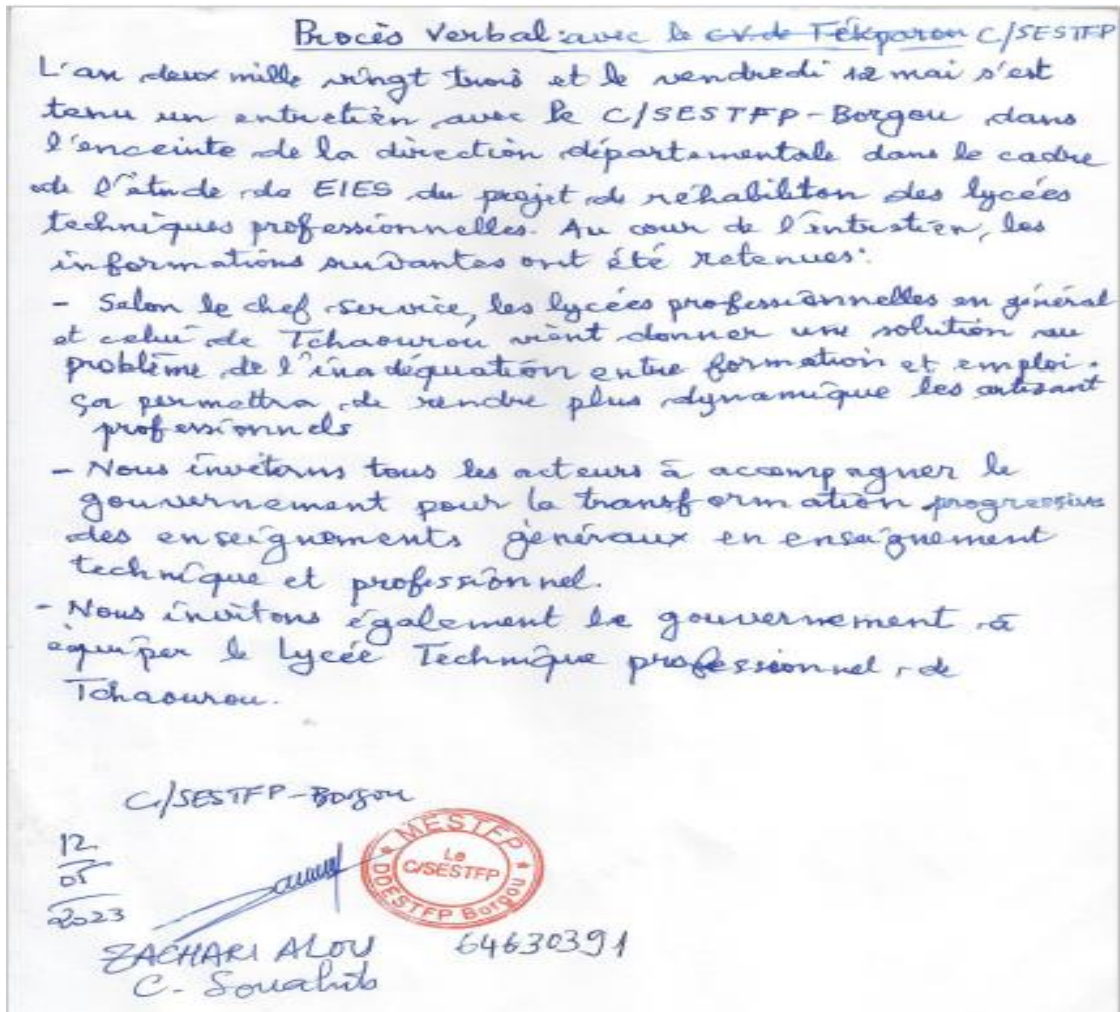 Procès Verbal: avec le cv.de Tékparou C/SESTFP
L'an deux mille vingt trois et le vendredi 12 mai s'est
tenu un entretien avec le C/SESTFP-Borgou dans
l'enceinte de la direction départementale dans le cadre
de l'étude de EIES du projet de réhabiliton des lycées
techniques professionnelles. Au cour de l'entretien, les
informations suivantes ont été retenues:
- Selon le chef service, les lycées professionnelles en général
et celui de Tchaourou vient donner une solution au
problème de l'inadéquation entre formation et emploi.
ça permettra de rendre plus dynamique les artisant
professionnels
- Nous invitons tous les acteurs à accompagner le
gouvernement pour la transformation progressive
des enseignements généraux en enseignement
technique et professionnel.
- Nous invitons également le gouvernement à
équiper le Lycée Technique professionnel de
Tchaourou.
C/SESTFP-Borgou
12
05
2023
MESTFP
Le
C/SESTFP
DDESTFP Borgou
ZACHARI ALOU 64630391
C. Souahib